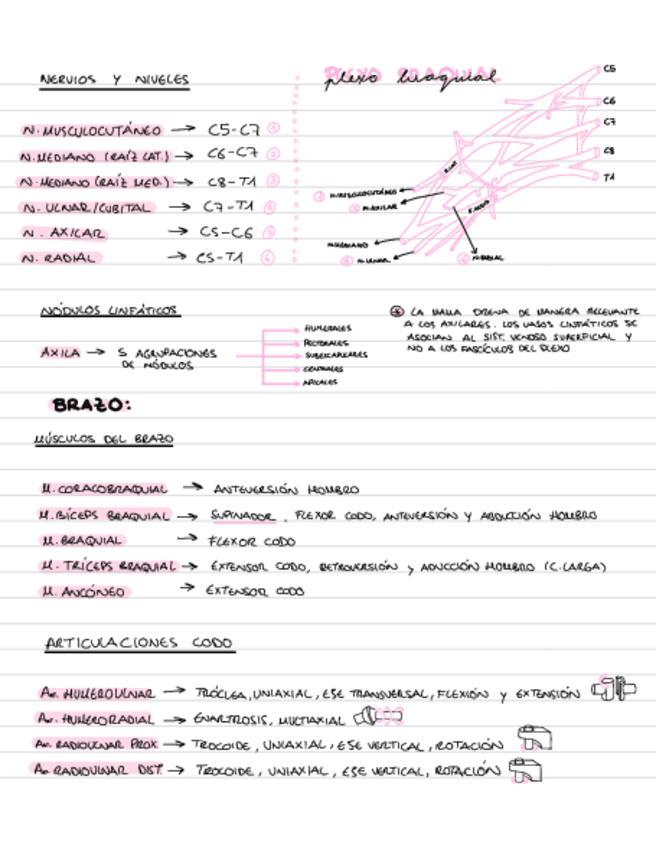 NERVIOS Y NIVELES
N. MUSCULOCUTÁNEO → C5-C7 ①
N. MEDIANO (RAÍZ LAT.) → C6-C7 ②
N. MEDIANO (RAÍZ MED.) → C8-T1 ③
N. ULNAR/CUBITAL → C7-T1 ④
N. AXILAR → C5-C6 ⑤
N. RADIAL → C5-T1 ⑥
PLEXO BRAQUIAL
plexo braquial
C5
C6
C7
C8
T1
N. MUSCULOCUTÁNEO
N. AXILAR
N. MEDIANO
N. ULNAR
N. RADIAL
NÓDULOS LINFÁTICOS
AXILA → 5 AGRUPACIONES
DE NÓDULOS
HUMERALES
PECTORALES
SUBESCAPULARES
CENTRALES
APICALES
LA MAMA DRENA DE MANERA RELEVANTE
A LOS AXILARES. LOS VASOS LINFÁTICOS SE
ASOCIAN AL SIST. VENOSO SUPERFICIAL Y
NO A LOS FASCÍCULOS DEL PLEXO
BRAZO:
MÚSCULOS DEL BRAZO
M. CORACOBRAQUIAL → ANTEVERSIÓN HOMBRO
M. BÍCEPS BRAQUIAL → SUPINADOR, FLEXOR CODO, ANTEVERSIÓN Y ABDUCCIÓN HOMBRO
M. BRAQUIAL → FLEXOR CODO
M. TRÍCEPS BRAQUIAL → EXTENSOR CODO, RETROVERSIÓN Y ADUCCIÓN HOMBRO (C. LARGA)
M. ANCÓNEO → EXTENSOR CODO
ARTICULACIONES CODO
Ar. HUMEROULNAR → TRÓCLEA, UNIAXIAL, EJE TRANSVERSAL, FLEXIÓN Y EXTENSIÓN
Ar. HUMERORADIAL → ENARTROSIS, MULTIAXIAL
Ar. RADIOULNAR PROX. → TROCOIDE, UNIAXIAL, EJE VERTICAL, ROTACIÓN
Ar. RADIOULNAR DIST. → TROCOIDE, UNIAXIAL, EJE VERTICAL, ROTACIÓN